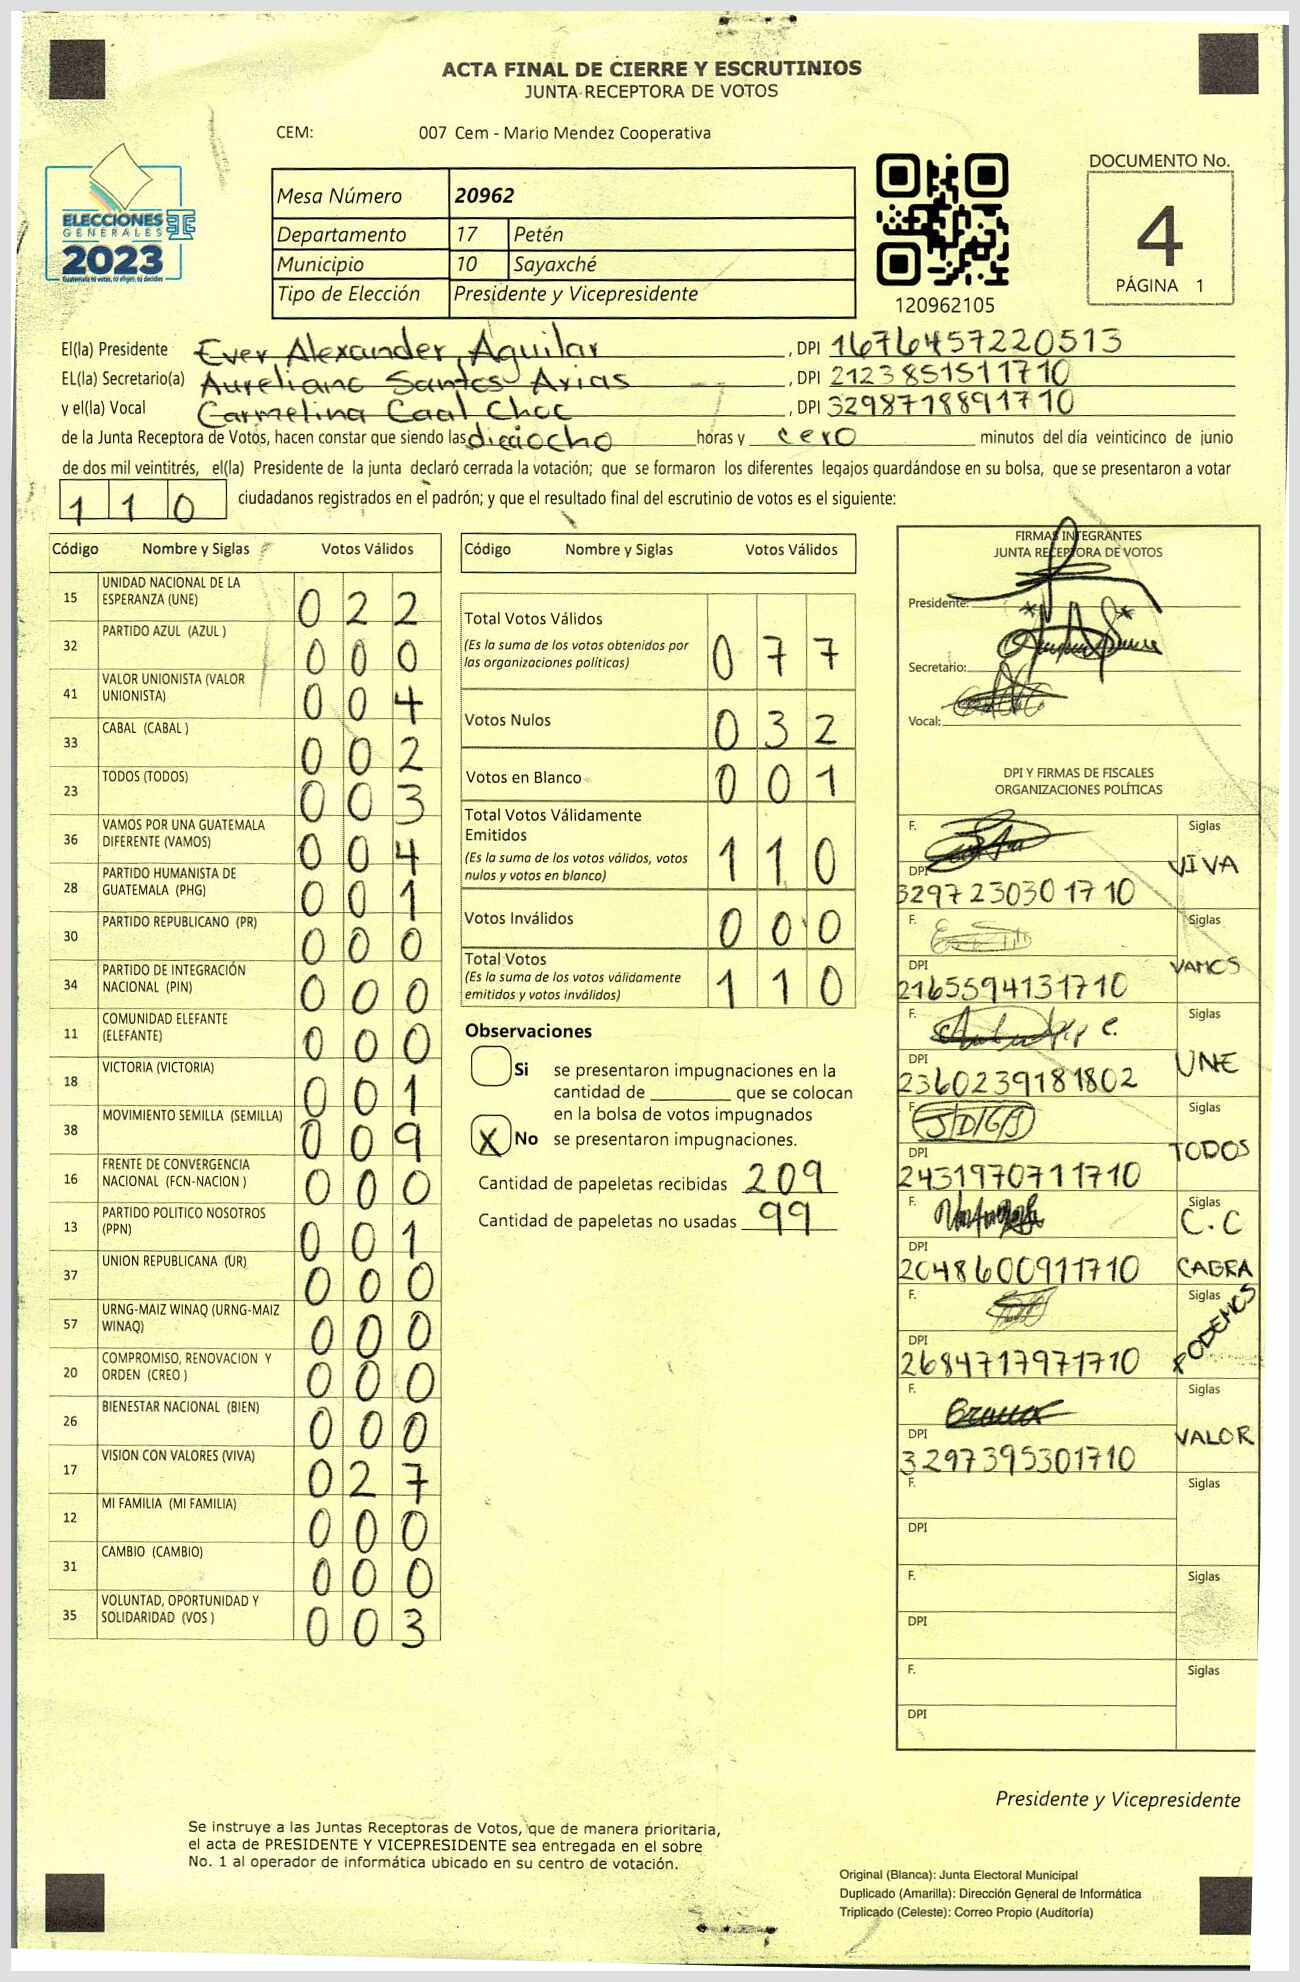 ACTA FINAL DE CIERRE Y ESCRUTINIOS
JUNTA RECEPTORA DE VOTOS
CEM: 007 Cem - Mario Mendez Cooperativa
ELECCIONES
GENERALES
2023
Guatemala tú votas, tú eliges, tú decides
Mesa Número 20962
Departamento 17 Petén
Municipio 10 Sayaxché
Tipo de Elección Presidente y Vicepresidente
120962105
DOCUMENTO No.
4
PÁGINA 1
El(la) Presidente Ever Alexander Aguilar, DPI 1676457220513
EL(la) Secretario(a) Aureliano Santos Arias, DPI 2123851511710
y el(la) Vocal Carmelina Caal Choc, DPI 3298718891710
de la Junta Receptora de Votos, hacen constar que siendo las dieciocho horas y cero minutos del día veinticinco de junio
de dos mil veintitrés, el(la) Presidente de la junta declaró cerrada la votación; que se formaron los diferentes legajos guardándose en su bolsa, que se presentaron a votar
110 ciudadanos registrados en el padrón; y que el resultado final del escrutinio de votos es el siguiente:
Código Nombre y Siglas Votos Válidos
15 UNIDAD NACIONAL DE LA ESPERANZA (UNE) 022
32 PARTIDO AZUL (AZUL ) 000
41 VALOR UNIONISTA (VALOR UNIONISTA) 004
33 CABAL (CABAL ) 002
23 TODOS (TODOS) 003
36 VAMOS POR UNA GUATEMALA DIFERENTE (VAMOS) 004
28 PARTIDO HUMANISTA DE GUATEMALA (PHG) 001
30 PARTIDO REPUBLICANO (PR) 000
34 PARTIDO DE INTEGRACIÓN NACIONAL (PIN) 000
11 COMUNIDAD ELEFANTE (ELEFANTE) 000
18 VICTORIA (VICTORIA) 001
38 MOVIMIENTO SEMILLA (SEMILLA) 009
16 FRENTE DE CONVERGENCIA NACIONAL (FCN-NACION ) 000
13 PARTIDO POLITICO NOSOTROS (PPN) 001
37 UNION REPUBLICANA (UR) 000
57 URNG-MAIZ WINAQ (URNG-MAIZ WINAQ) 000
20 COMPROMISO, RENOVACION Y ORDEN (CREO ) 000
26 BIENESTAR NACIONAL (BIEN) 000
17 VISION CON VALORES (VIVA) 027
12 MI FAMILIA (MI FAMILIA) 000
31 CAMBIO (CAMBIO) 000
35 VOLUNTAD, OPORTUNIDAD Y SOLIDARIDAD (VOS ) 003
Código Nombre y Siglas Votos Válidos
Total Votos Válidos 077
(Es la suma de los votos obtenidos por
las organizaciones políticas)
Votos Nulos 032
Votos en Blanco 001
Total Votos Válidamente
Emitidos 110
(Es la suma de los votos válidos, votos
nulos y votos en blanco)
Votos Inválidos 000
Total Votos 110
(Es la suma de los votos válidamente
emitidos y votos inválidos)
Observaciones
Si se presentaron impugnaciones en la
cantidad de ________ que se colocan
en la bolsa de votos impugnados
X No se presentaron impugnaciones.
Cantidad de papeletas recibidas 209
Cantidad de papeletas no usadas 99
FIRMAS INTEGRANTES
JUNTA RECEPTORA DE VOTOS
Presidente:
Secretario:
Vocal:
DPI Y FIRMAS DE FISCALES
ORGANIZACIONES POLÍTICAS
F. Siglas VIVA
DPI 3297230301710
F. Siglas VAMOS
DPI 2165594131710
F. Siglas UNE
DPI 2360239181802
F. Siglas TODOS
DPI 2431970711710
F. Siglas C.C CABRA
DPI 2048600911710
F. Siglas PODEMOS
DPI 2684717971710
F. Siglas VALOR
DPI 3297395301710
F. Siglas
DPI
F. Siglas
DPI
F. Siglas
DPI
Presidente y Vicepresidente
Se instruye a las Juntas Receptoras de Votos, que de manera prioritaria,
el acta de PRESIDENTE Y VICEPRESIDENTE sea entregada en el sobre
No. 1 al operador de informática ubicado en su centro de votación.
Original (Blanca): Junta Electoral Municipal
Duplicado (Amarilla): Dirección General de Informática
Triplicado (Celeste): Correo Propio (Auditoría)